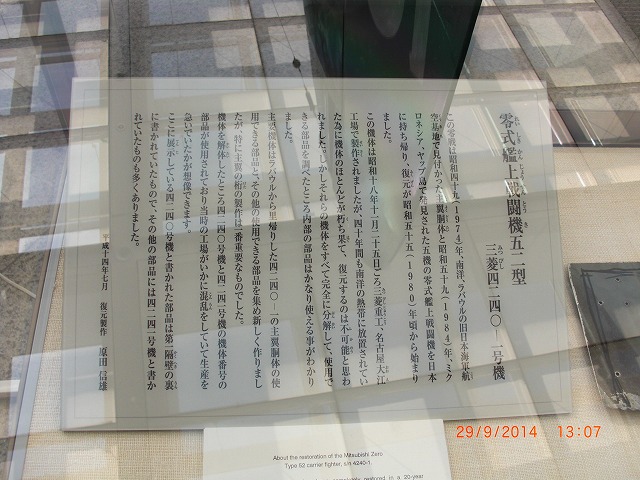 零式艦上戦闘機五二型
三菱四二四〇 一号機
この零戦は昭和四十九(1974)年、南洋、ラバウルの旧日本海軍航
空基地で見付かった主翼胴体と昭和五十九(1984)年、ミク
ロネシア、ヤップ島で発見された五機の零式艦上戦闘機を日本
に持ち帰り、復元が昭和五十五(1980)年頃から始まり
ました。
この機体は昭和十八年十二月二十五日ごろ三菱重工、名古屋大江
工場で製作されましたが、四十年間も南洋の熱帯に放置されてい
た為に機体のほとんどが朽ち果て、復元するのは不可能と思わ
れました。しかしそれらの機体をすべて完全に分解して、使用で
きる部品を調べたところ内部の部品はかなり使える事がわかり
ました。
主要機体はラバウルから里帰りした四二四〇-一の主翼胴体の使
用できる部品と、その他の使用できる部品を集め新しく作りまし
たが、特に主翼の桁の製作は一番重要なものでした。
機体を解体したところ四二四〇号機と四二四一号機の機体番号の
部品が使用されており当時の工場がいかに混乱をしていて生産を
急いでいたかが想像できます。
ここに展示している四二四〇号機と書かれた部品は第一隔壁の裏
に書かれていたもので、その他の部品には四二四一号機と書か
れていたものも多くありました。
平成十四年七月 復元製作 原田 信雄
About the restoration of the Mitsubishi Zero
Type 52 carrier fighter, s/n 4240-1
completely restored in a 20-year
29/9/2014 13:07